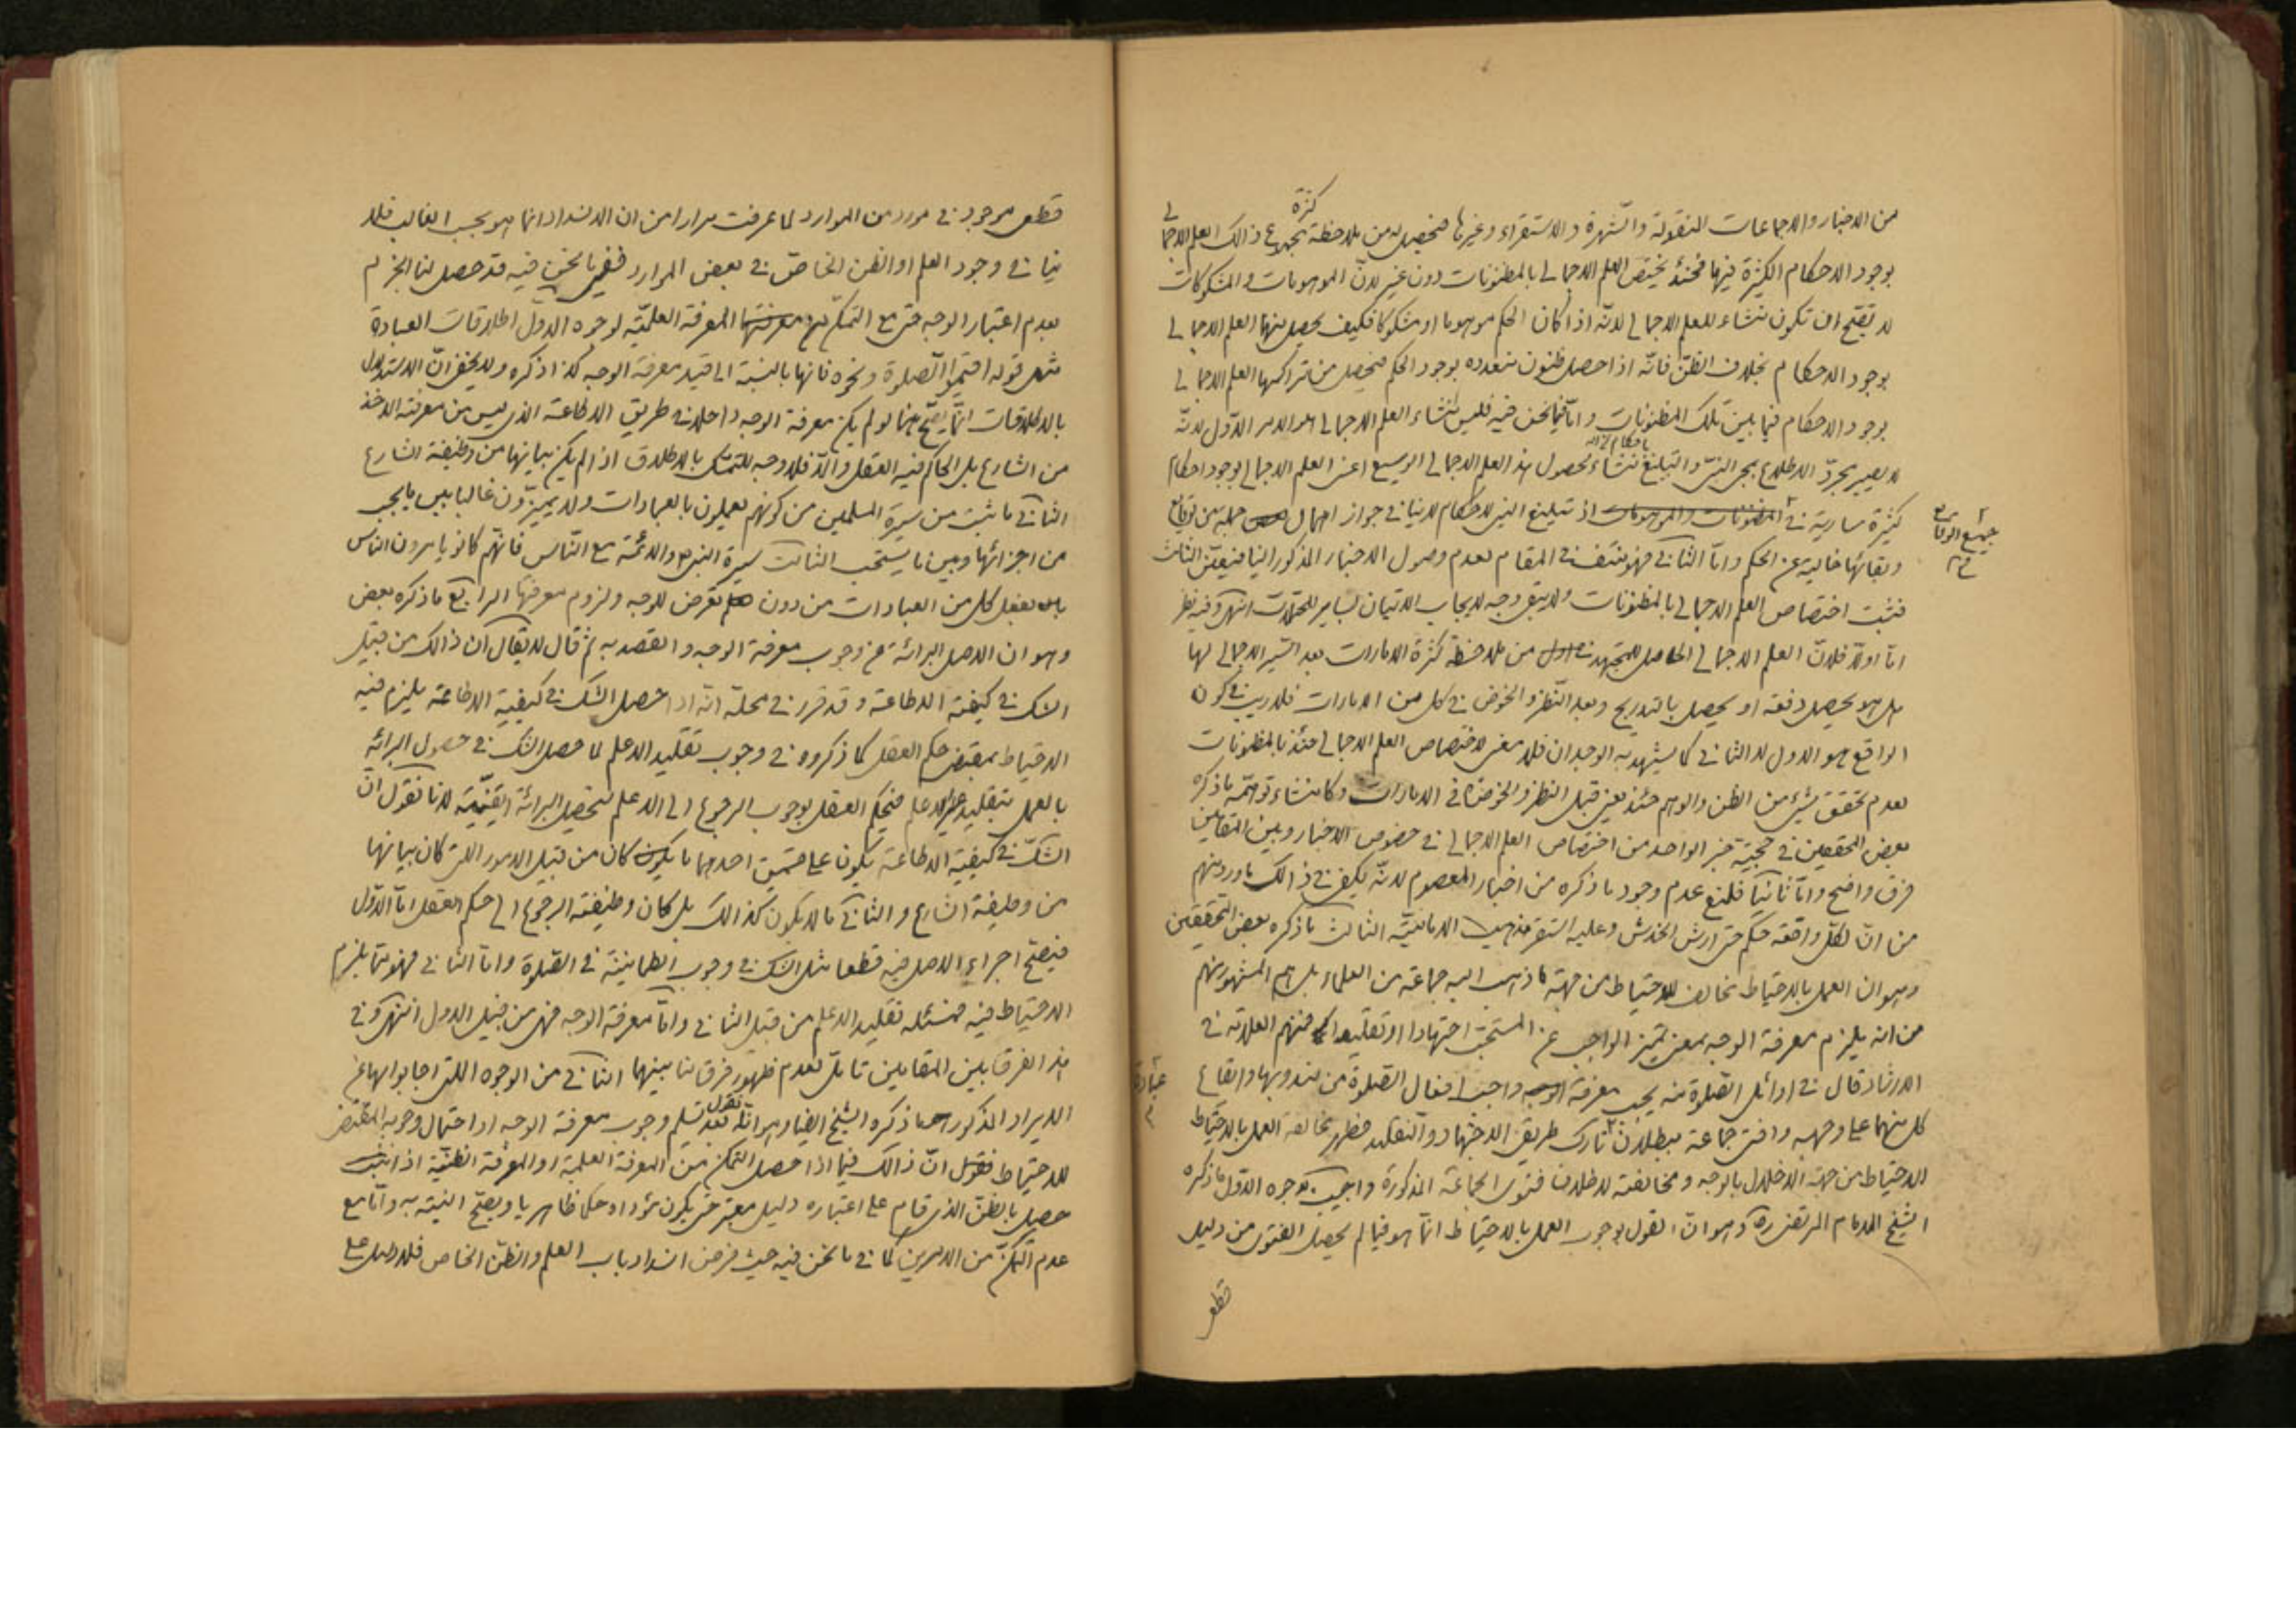 من الاخبار والاجماعات المنقولة والشهرة والاستقراء وغيرها فيحصل له من ملاحظة كثرة مجموع ذالك العلم الاجمالي
بوجود الاحكام الكثيرة فيها فحينئذ يختص العلم الاجمالي بالمظنونات دون غير لانّ الموهومات والمشكوكات
لا تصحّ ان تكون منشاء للعلم الاجمالي لانّه اذا كان الحكم موهوما او مشكوكا فكيف يحصل منهما العلم الاجمالي
بوجود الاحكام بخلاف الظنّ فانّه اذا حصل ظنون متعدده بوجود الحكم فيحصل من تراكمها العلم الاجمالي
بوجود الاحكام فيما بين تلك المظنونات وامّا فيما نحن فيه فليس منشاء العلم الاجمالي هو الامر الاوّل لانّه
لا يصير مجرّد الاطلاع بمجئ النبيّ والتبليغ باحكام منشاء لحصول هذا العلم الاجمالي الوسيع اعنى العلم الاجمالي بوجود احكام
كثيرة سارية في المظنونات والموهومات اذ تبليغ النبي للاحكام لا ينافي جواز اهمال جملة من الوقايع
جميع الوقايع
وبقائها خالية عن الحكم وامّا الثاني فهو منتف في المقام لعدم وصول الاخبار المذكور الينا فيتعيّن الثالث
فثبت اختصاص العلم الاجمالي بالمظنونات ولا يبقى وجه لايجاب الاتيان بساير المحتملات انتهى وفيه نظر
امّا اولا فلانّ العلم الاجمالي الحاصل للمجتهد من ملاحظة كثرة الامارات بعد السير الاجمالي لها
هل هو يحصل دفعة او يحصل بالتدريج وبعد النظر والخوض في كل من الامارات فلا ريب في كون
الواقع هو الاول لا الثاني كما يشهد به الوجدان فلا معنى لاختصاص العلم الاجمالي حينئذ بالمظنونات
لعدم تحقق شيئ من الظن والوهم حينئذ يعنى قبل النظر والخوض في الامارات وكان منشاء توهمّه ما ذكره
بعض المحققين في حجيّة خبر الواحد من اختصاص العلم الاجمالي في خصوص الاخبار وبين المقامين
فرق واضح وامّا ثانيا فلمنع عدم وجود ما ذكره من اخبار المعصوم لانّه يكفي في ذالك ما ورد منهم
من انّ لكلّ واقعة حكم حتى ارش الخدش وعليه استقر مذهب الامامية الثالث ما ذكره بعض المحققين
وهو ان العمل بالاحتياط مخالف للاحتياط من جهة ما ذهب اليه جماعة من العلماء بل هم المشهور بينهم
من انه يلزم معرفة الوجه بمعنى تميز الواجب عن المستحب اجتهادا او تقليدا فمنهم العلامة في
الارشاد قال في اوائل الصّلوة منه يجب معرفة واجب افعال الصلوة من مندوبها وايقاع
كل منهما على وجهه وافتى جماعة ببطلان عبادة تارك طريقى الاجتهاد والتقليد فظهر مخالفة العمل بالاحتياط
الاحتياط من جهة الاخلال بالوجه ومخالفته لاطلاق فتوى الجماعة المذكورة واجيب بوجوه الاوّل ما ذكره
الشيخ الامام المرتضى ره وهو انّ القول بوجوب العمل بالاحتياط انّما هو فيما لم يحصل الفتوى من دليل
قطعى
قطعى موجود في مورد من الموارد لما عرفت مرارا من ان الانسداد انما هو بحسب الغالب فلا
ينافي وجود العلم او الظن الخاصّ في بعض الموارد ففي ما نحن فيه قد حصل لنا الجزم
بعدم اعتبار الوجه حتى مع التمكّن من المعرفة العلميّة لوجوه الاول اطلاقات العبادة
مثل قوله اقيموا الصّلوة ونحوه فانها بالنسبة الى قيد معرفة الوجه كذا ذكره ولا يخفى انّ الاستدلال
بالاطلاقات انّما يصحّ هنا لو لم يكن معرفة الوجه داخلا في طريق الاطاعة الذى ليس من معرفته الاخذ
من الشارع بل الحاكم فيه العقل والّا فلا وجه للتمسّك بالاطلاق اذا لم يكن بيانها من وظيفة الشارع
الثاني ما ثبت من سيرة المسلمين من كونهم يعملون بالعبادات ولا يميّزون غالبا بين ما يجب
من اجزائها وبين ما يستحب الثالث سيرة النبي ص والائمّة مع النّاس فانّهم كانوا يامرون الناس
بان يفعل كل من العبادات من دون تعرض للوجه ولزوم معرفتها الرابع ما ذكره بعض
وهو ان الاصل البرائة عن وجوب معرفة الوجه والقصد به ثم قال لا يقال ان ذالك من قبيل
الشك في كيفية الاطاعة وقد قرر في محلّه انّه اذا حصل الشك في كيفيّة الاطاعة يلزم فيه
الاحتياط بمقتضى حكم العقل كما ذكروه في وجوب تقليد الاعلم لما حصل الشك في حصول البرائة
بالعمل بتقليد غير الاعلم فيحكم العقل بوجوب الرجوع الى الاعلم لتحصيل البرائة اليقينيّة لانا نقول انّ
الشكّ في كيفيّة الاطاعة يكون على قسمين احدهما ما كان من قبيل الامور التى كان بيانها
من وظيفة الشارع والثاني ما لا يكون كذالك بل كان وظيفته الرجوع الى حكم العقل امّا الاوّل
فيصحّ اجراء الاصل فيه قطعا مثل الشك في وجوب الطمانينة في الصّلوة وامّا الثاني فهو ممّا يلزم
الاحتياط فيه فمسئلة تقليد الاعلم من قبيل الثاني وامّا معرفة الوجه فهى من قبيل الاول انتهى وفي
هذا الفرق بين المقامين تامّل لعدم ظهور فرق لنا بينهما الثاني من الوجوه اللتى اجابوا بها عن
الايراد المذكور ما ذكره الشيخ ايضا وهو انّا نقول بعد تسليم وجوب معرفة الوجه او احتمال وجوبه المقتضى
للاحتياط انّ ذالك فيما اذا حصل التمكن من المعرفة العلمية او المعرفة الظنيّة اذا
حصل بالظنّ الذى قام على اعتباره دليل معتبر حتى يكون مؤداه حكما ظاهريا ويصحّ النيّة به وامّا مع
عدم التمكّن من الامرين كما في ما نحن فيه حيث فرض انسداد باب العلم والظنّ الخاص فلا دليل على